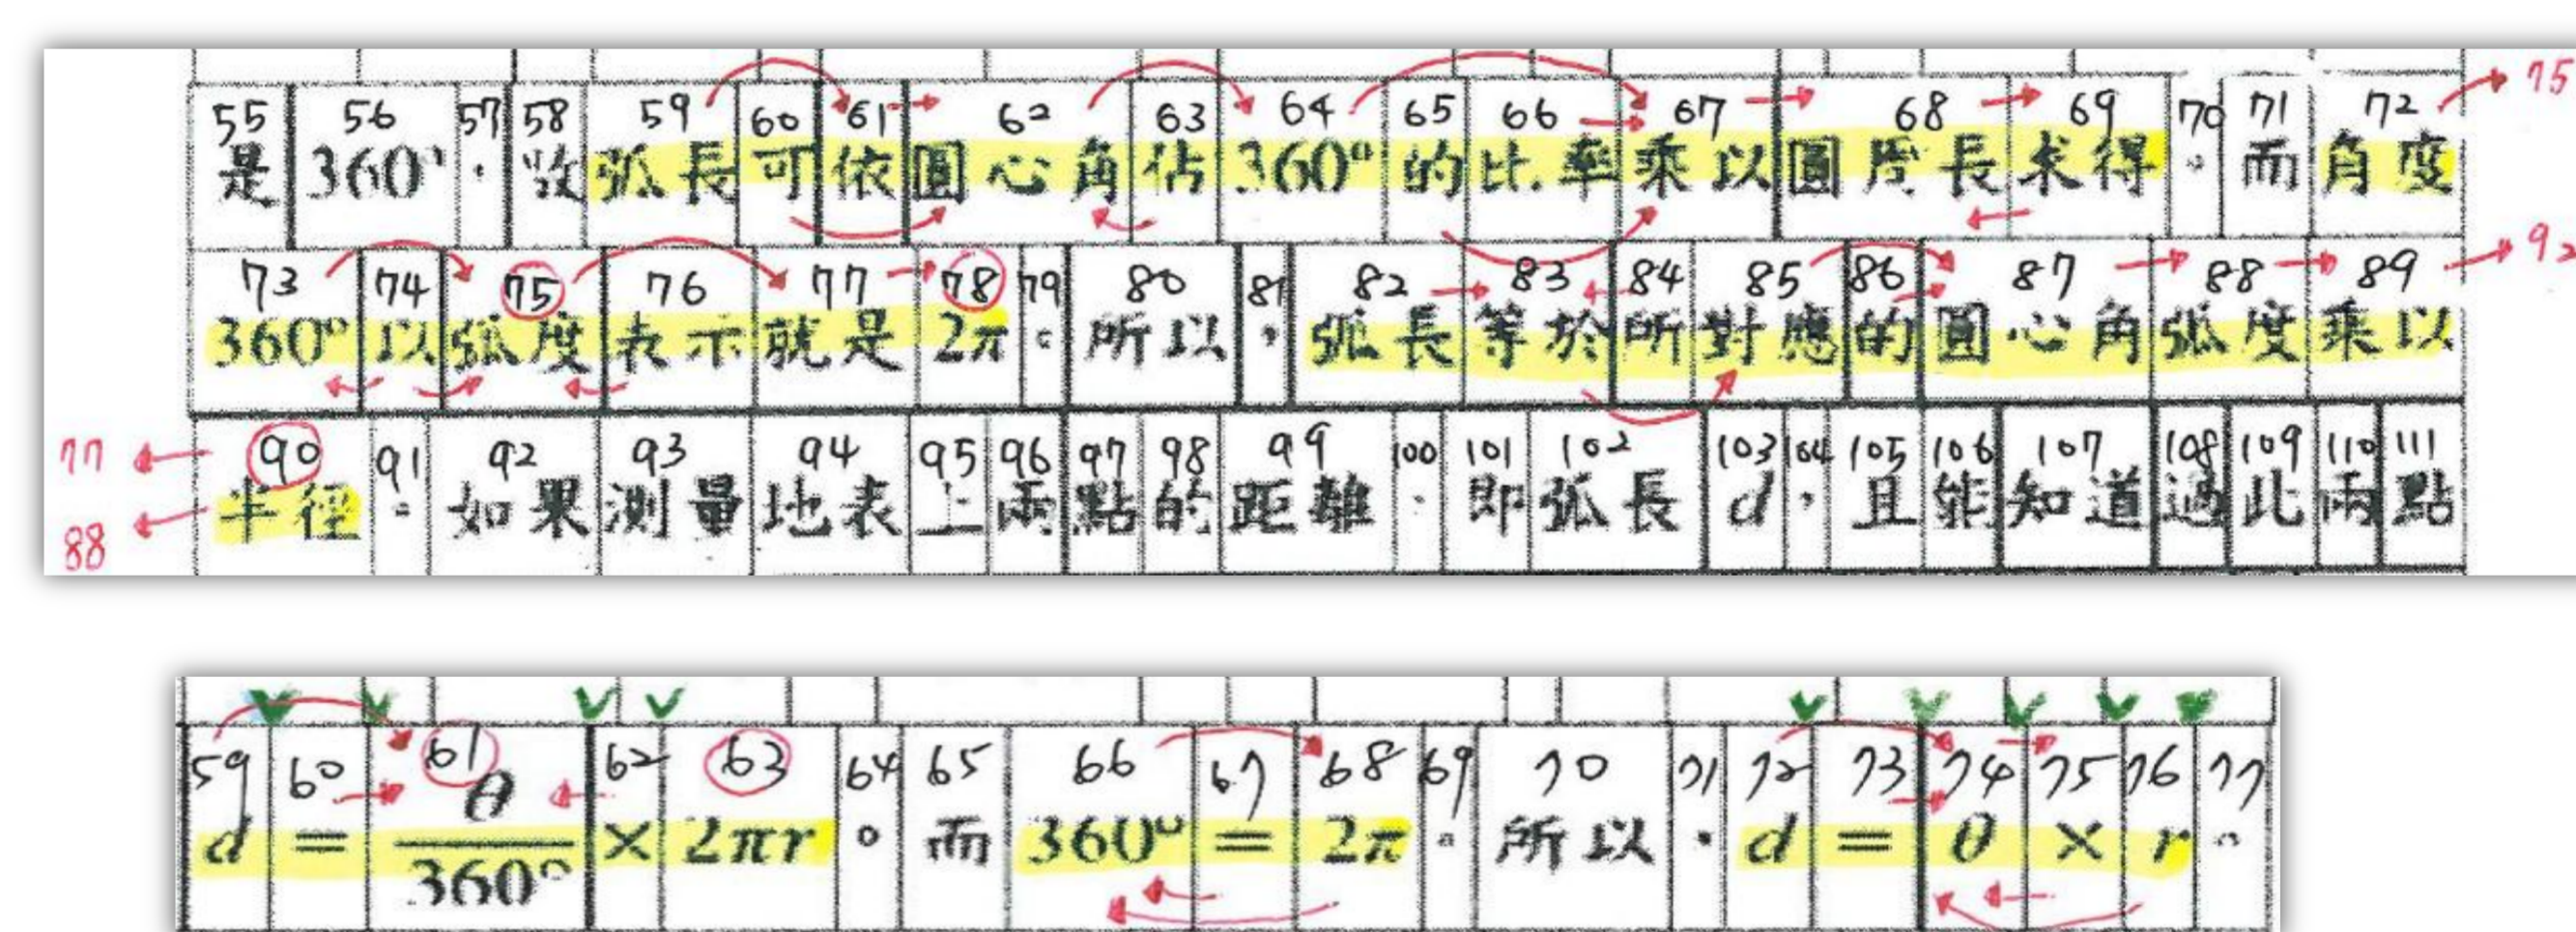 55 56 57 58 59 60 61 62 63 64 65 66 67 68 69 70 71 72 75
是 360°,故弧長可依圓心角佔 360° 的比率乘以圓周長求得。而角度
73 74 75 76 77 78 79 80 81 82 83 84 85 86 87 88 89
360° 以弧度表示就是 2π。所以,弧長等於所對應的圓心角弧度乘以
77 90 91 92 93 94 95 96 97 98 99 100 101 102 103 104 105 106 107 108 109 110 111
88 半徑。如果測量地表上兩點的距離,即弧長 d,且能知道過此兩點
59 60 61 62 63 64 65 66 67 68 69 70 71 72 73 74 75 76 77
d = θ/360° × 2πr。而 360° = 2π。所以,d = θ × r。